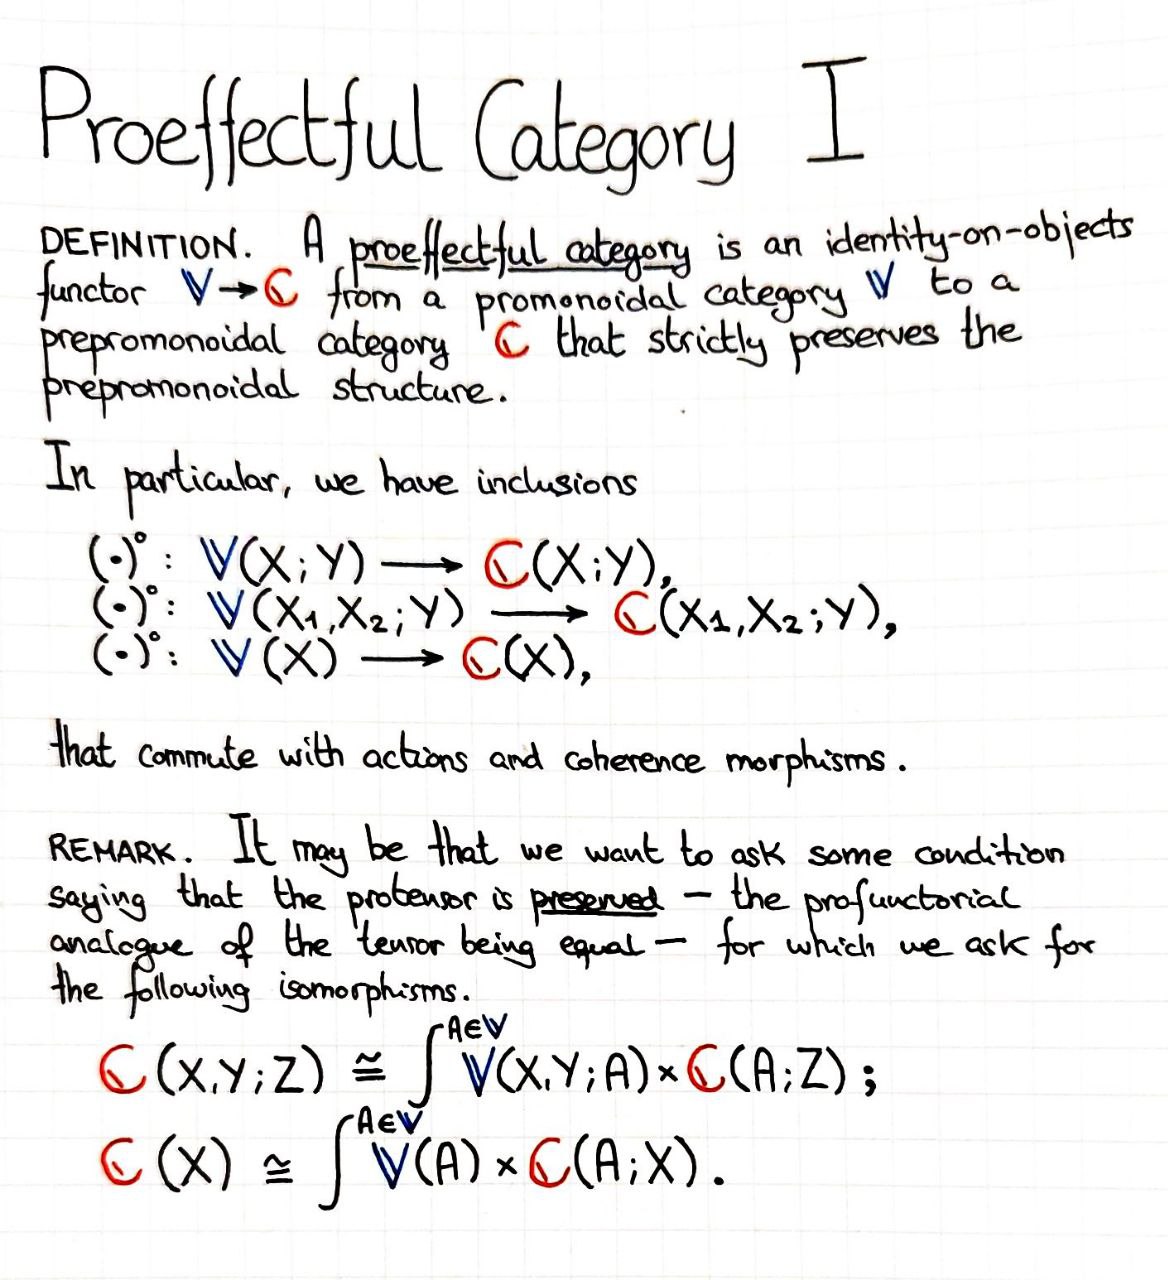 Proeffectful Category I
DEFINITION. A proeffectful category is an identity-on-objects
functor 𝕍→ℂ from a promonoidal category 𝕍 to a
prepromonoidal category ℂ that strictly preserves the
prepromonoidal structure.
In particular, we have inclusions
(•)°: 𝕍(X;Y) ⟶ ℂ(X;Y),
(•)°: 𝕍(X₁,X₂;Y) ⟶ ℂ(X₁,X₂;Y),
(•)°: 𝕍(X) ⟶ ℂ(X),
that commute with actions and coherence morphisms.
REMARK. It may be that we want to ask some condition
saying that the protensor is preserved – the profunctorial
analogue of the tensor being equal – for which we ask for
the following isomorphisms.
ℂ(X,Y;Z) ≅ ∫^{A∈𝕍} 𝕍(X,Y;A) × ℂ(A;Z);
ℂ(X) ≅ ∫^{A∈𝕍} 𝕍(A) × ℂ(A;X).